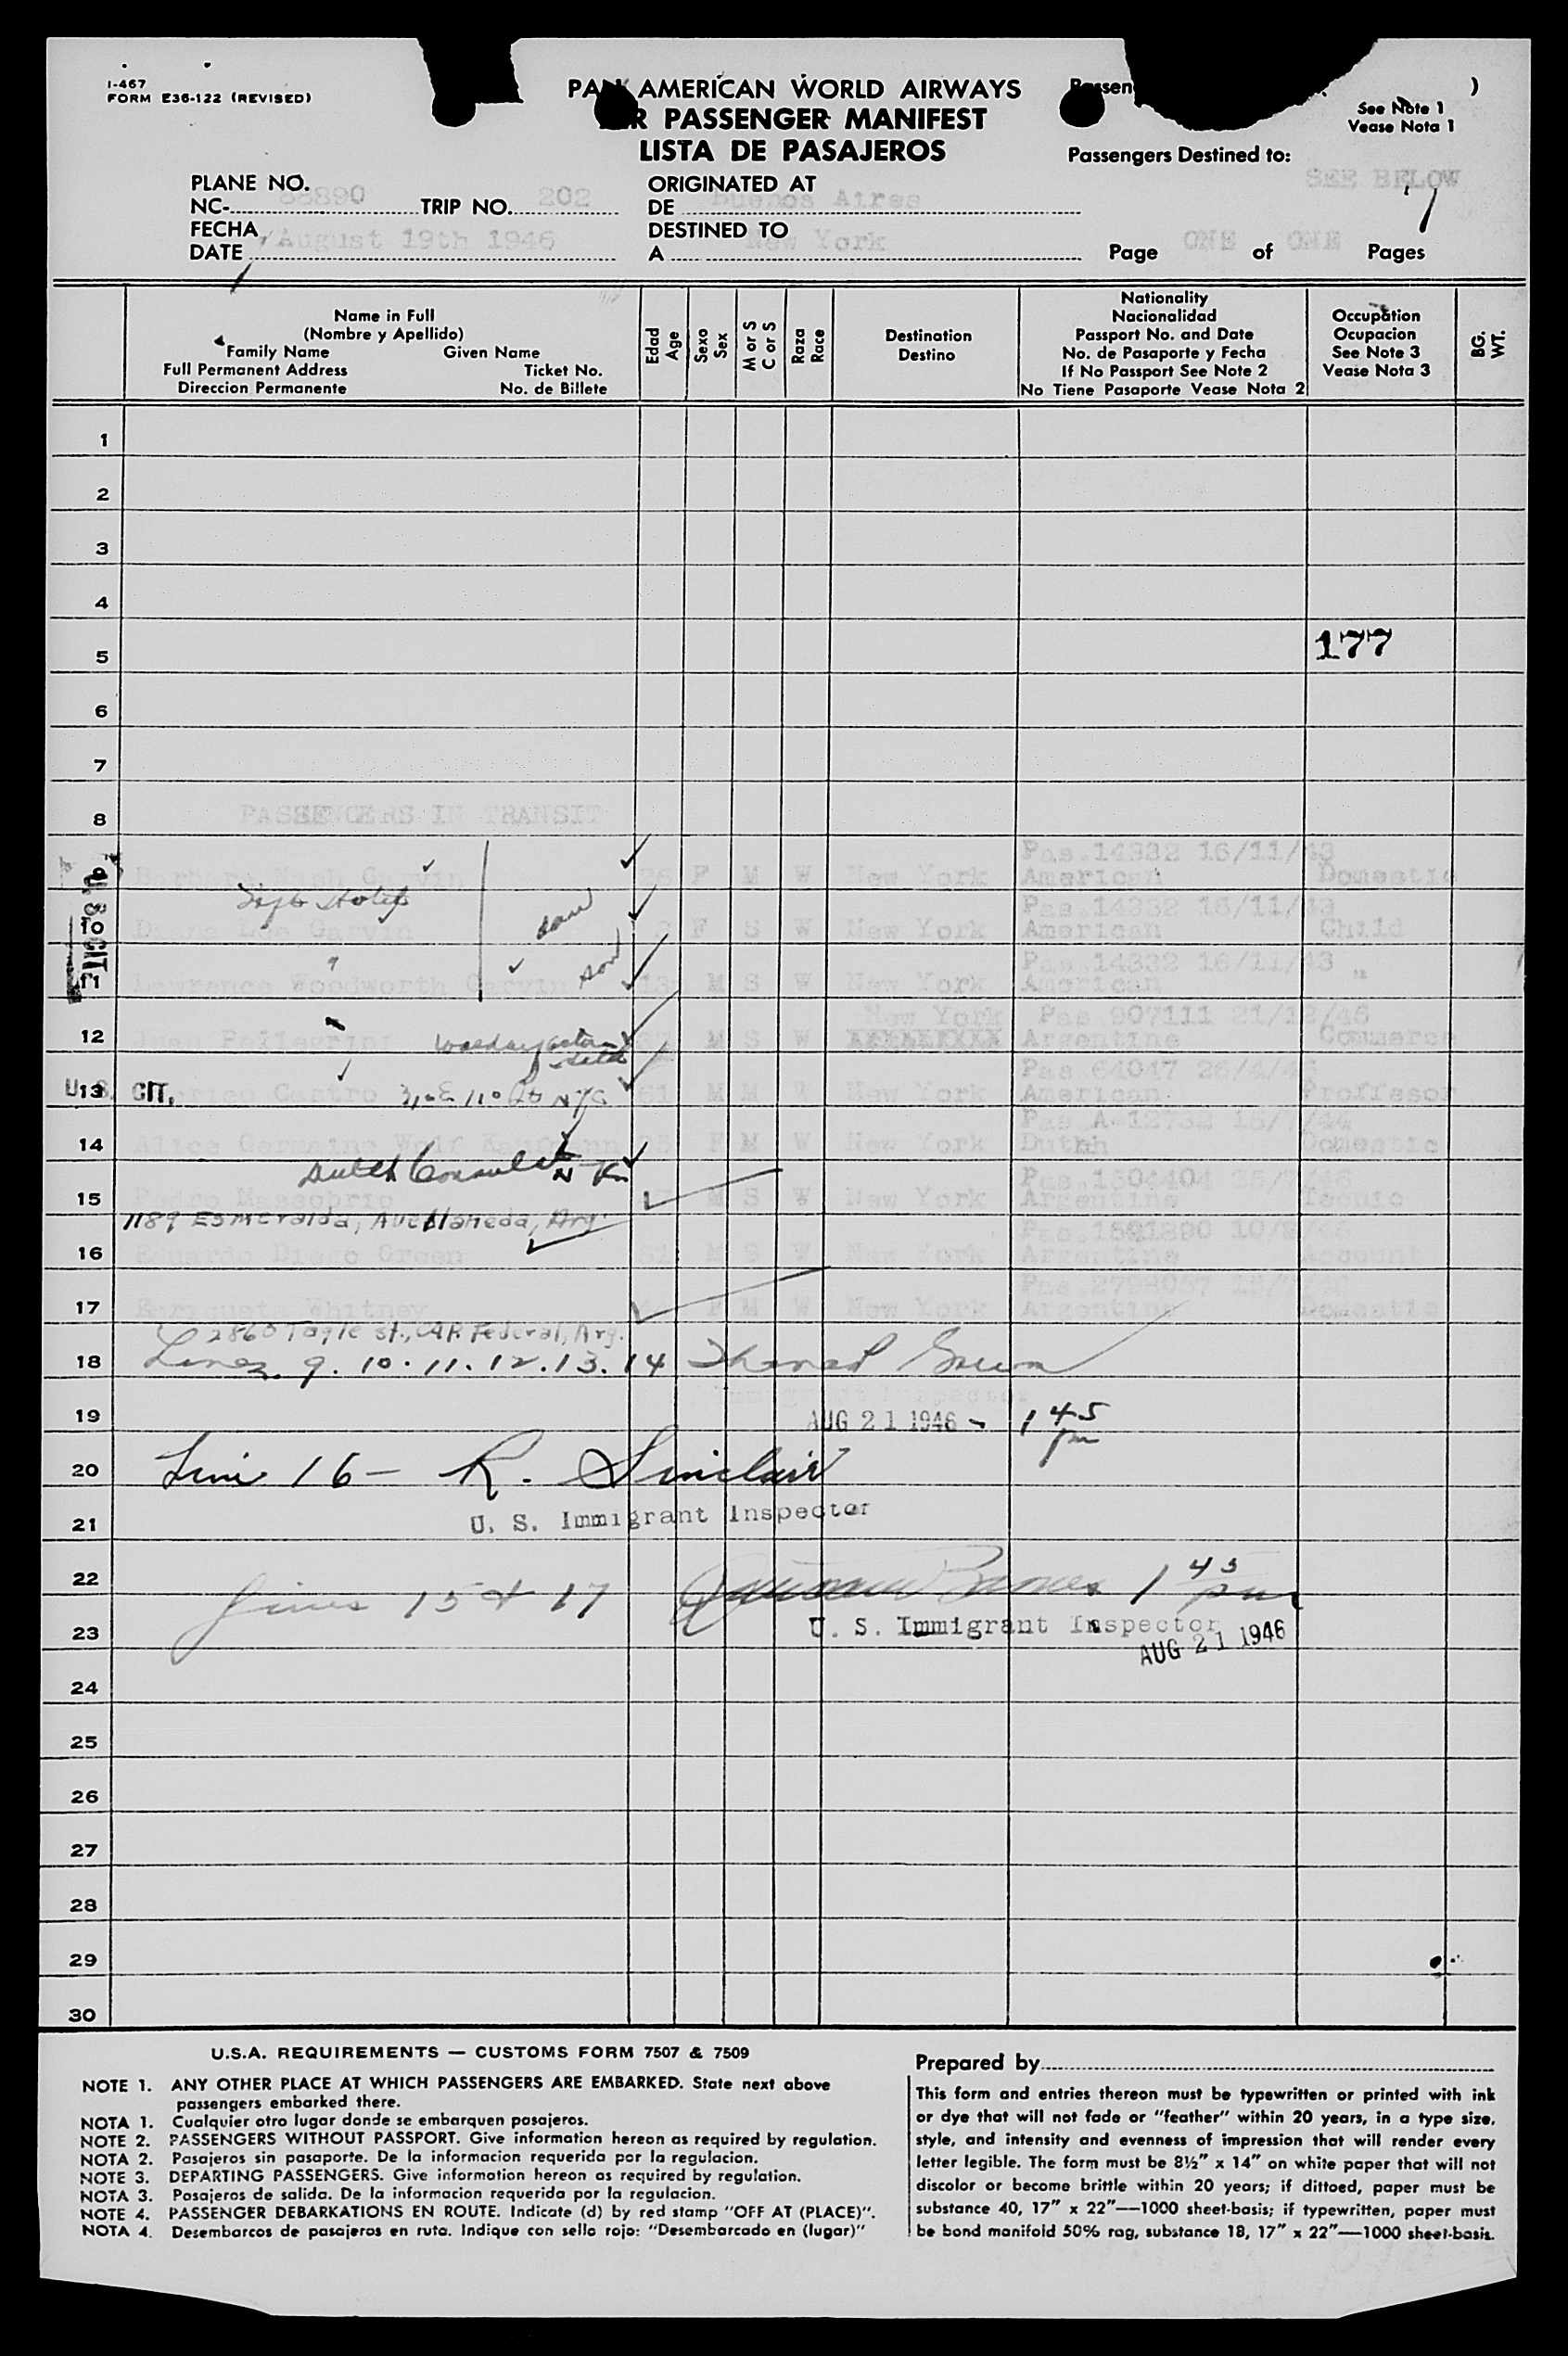 I-467
FORM E36-122 (REVISED)
PAN AMERICAN WORLD AIRWAYS
R PASSENGER MANIFEST
LISTA DE PASAJEROS
)
See Note 1
Vease Nota 1
Passengers Destined to:
SEE BELOW
PLANE NO.
NC- 88890 TRIP NO. 202
FECHA
DATE August 19th 1946
ORIGINATED AT
DE Buenos Aires
DESTINED TO
A New York
Page ONE of ONE Pages
Name in Full
(Nombre y Apellido)
Family Name Given Name
Full Permanent Address Ticket No.
Direccion Permanente No. de Billete
Edad
Age
Sexo
Sex
M or S
C or S
Raza
Race
Destination
Destino
Nationality
Nacionalidad
Passport No. and Date
No. de Pasaporte y Fecha
If No Passport See Note 2
No Tiene Pasaporte Vease Nota 2
Occupation
Ocupacion
See Note 3
Vease Nota 3
BG.
WT.
1
2
3
4
5 177
6
7
8 PASSENGERS IN TRANSIT
Pas.14332 16/11/43
9 Barbara Nash Garvin 26 F M W New York American Domestic
U. S. CIT.
Pas.14332 16/11/43
10 Diana Lee Garvin F S W New York American Child
Pas.14332 16/11/43
11 Lawrence Woodworth Garvin M S W New York American "
New York Pas 907111 21/12/45
12 Juan Pellegrini M S W Argentine Commerce
Pas 64047
U.S. CIT.
13 Castro 61 M M W New York American Professor
Pas A-12732
14 Alice Germaine Wolf Kaufmann F M W New York Duthh Domestic
Dutch Consulate N Y
Pas.1804404
15 Pedro M S W New York Argentine Tecnic
1189 Esmeralda, Avellaneda, Arg.
Pas.1591890
16 Eduardo Diego Green M S W New York Argentine Account
17 Enriqueta Whitney F M W New York Argentine Domestic
2860 Tagle st., CAP. Federal, Arg.
18 Lines 9. 10. 11. 12. 13. 14
19 AUG 21 1946 - 1 45 pm
20 Line 16 - R. Sinclair
21 U. S. Immigrant Inspector
22 Lines 15 & 17 1 45 pm
23 U. S. Immigrant Inspector
AUG 21 1946
24
25
26
27
28
29
30
U.S.A. REQUIREMENTS — CUSTOMS FORM 7507 & 7509
NOTE 1. ANY OTHER PLACE AT WHICH PASSENGERS ARE EMBARKED. State next above
passengers embarked there.
NOTA 1. Cualquier otro lugar donde se embarquen pasajeros.
NOTE 2. PASSENGERS WITHOUT PASSPORT. Give information hereon as required by regulation.
NOTA 2. Pasajeros sin pasaporte. De la informacion requerida por la regulacion.
NOTE 3. DEPARTING PASSENGERS. Give information hereon as required by regulation.
NOTA 3. Pasajeros de salida. De la informacion requerida por la regulacion.
NOTE 4. PASSENGER DEBARKATIONS EN ROUTE. Indicate (d) by red stamp "OFF AT (PLACE)".
NOTA 4. Desembarcos de pasajeros en ruta. Indique con sello rojo: "Desembarcado en (lugar)"
Prepared by
This form and entries thereon must be typewritten or printed with ink
or dye that will not fade or "feather" within 20 years, in a type size,
style, and intensity and evenness of impression that will render every
letter legible. The form must be 8½" x 14" on white paper that will not
discolor or become brittle within 20 years; if dittoed, paper must be
substance 40, 17" x 22"—1000 sheet-basis; if typewritten, paper must
be bond manifold 50% rag, substance 18, 17" x 22"—1000 sheet-basis.